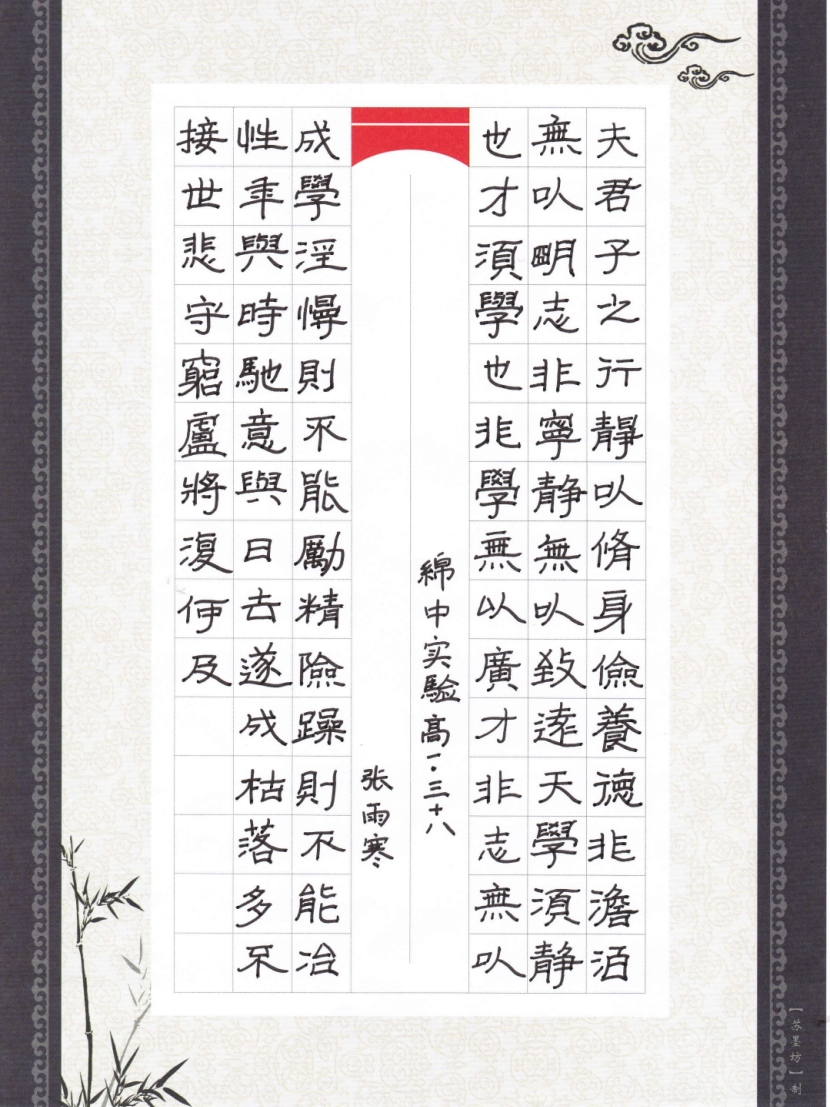 夫君子之行靜以脩身儉養德非澹泊
無以明志非寧静無以致遠天學須静
也才須學也非學無以廣才非志無以
綿中实驗高一·三十八
张雨寒
成學淫慢則不能勵精險躁則不能冶
性年與時馳意與日去遂成枯落多不
接世悲守窮廬將復何及
【苏墨坊】制